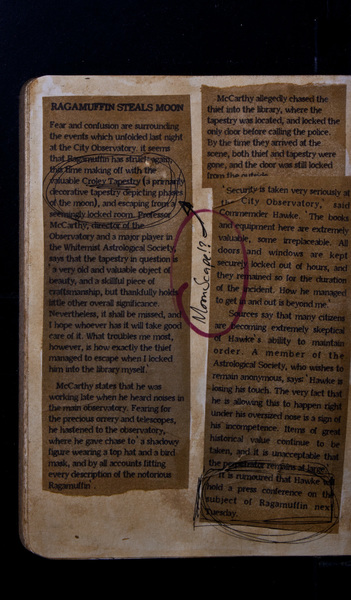 RAGAMUFFIN STEALS MOON
Fear and confusion are surrounding
the events which unfolded last night
at the City Observatory. It seems
that Ragamuffin has struck again,
this time making off with the
valuable Croley Tapestry (a primarily
decorative tapestry depicting phases
of the moon), and escaping from a
seemingly locked room. Professor
McCarthy, director of the
Observatory and a major player in
the Whitemist Astrological Society,
says that the tapestry in question is
'a very old and valuable object of
beauty, and a skillful piece of
craftmanship, but thankfully holds
little other overall significance.
Nevertheless, it shall be missed, and
I hope whoever has it will take good
care of it. What troubles me most,
however, is how exactly the thief
managed to escape when I locked
him into the library myself.'
McCarthy states that he was
working late when he heard noises in
the main observatory. Fearing for
the precious orrery and telescopes,
he hastened to the observatory,
where he gave chase to 'a shadowy
figure wearing a top hat and a bird
mask, and by all accounts fitting
every description of the notorious
Ragamuffin'.
McCarthy allegedly chased the
thief into the library, where the
tapestry was located, and locked the
only door before calling the police.
By the time they arrived at the
scene, both thief and tapestry were
gone, and the door was still locked
from the outside.
'Security is taken very seriously at
the City Observatory,' said
Commender Hawke. 'The books
and equipment here are extremely
valuable, some irreplaceable. All
doors and windows are kept
securely locked out of hours, and
they remained so for the duration
of the incident. How he managed
to get in and out is beyond me'.
Sources say that many citizens
are becoming extremely skeptical
of Hawke's ability to maintain
order. A member of the
Astrological Society, who wishes to
remain anonymous, says: 'Hawke is
losing his touch. The very fact that
he is allowing this to happen right
under his oversized nose is a sign of
his incompetence. Items of great
historical value continue to be
taken, and it is unacceptable that
the perpetrator remains at large.'
It is rumoured that Hawke will
hold a press conference on the
subject of Ragamuffin next
Tuesday.